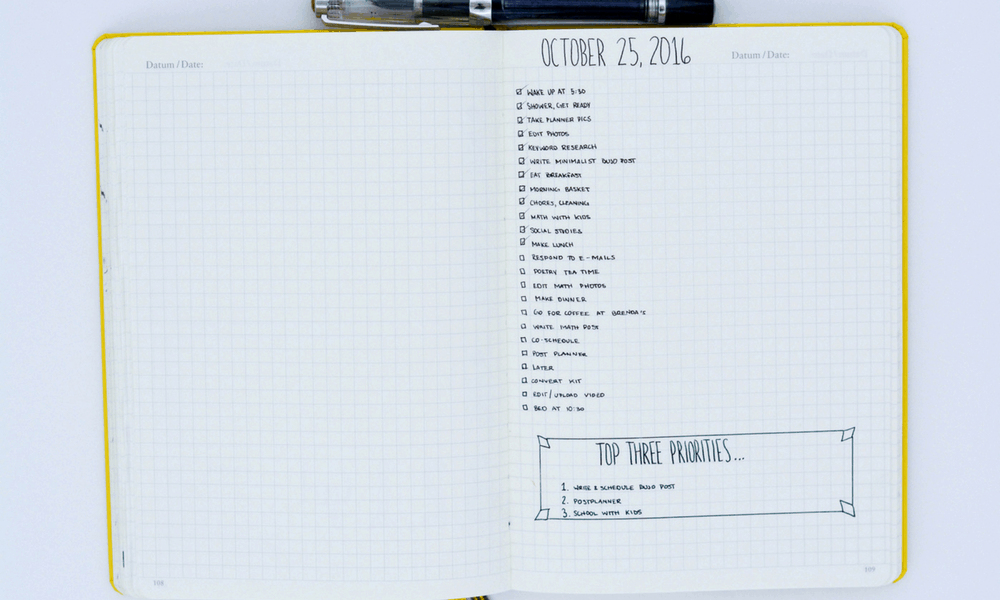 Datum / Date:
108
OCTOBER 25, 2016
Datum / Date:
WAKE UP AT 5:30
SHOWER, GET READY
TAKE PLANNER PICS
EDIT PHOTOS
KEYWORD RESEARCH
WRITE MINIMALIST BUJO POST
EAT BREAKFAST
MORNING BASKET
CHORES, CLEANING
MATH WITH KIDS
SOCIAL STUDIES
MAKE LUNCH
RESPOND TO E-MAILS
POETRY TEA TIME
EDIT MATH PHOTOS
MAKE DINNER
GO FOR COFFEE AT BRENDA'S
WRITE MATH POST
CO-SCHEDULE
POST PLANNER
LATER
CONVERT KIT
EDIT/UPLOAD VIDEO
BED AT 10:30
TOP THREE PRIORITIES...
1. WRITE & SCHEDULE BUJO POST
2. POSTPLANNER
3. SCHOOL WITH KIDS
109